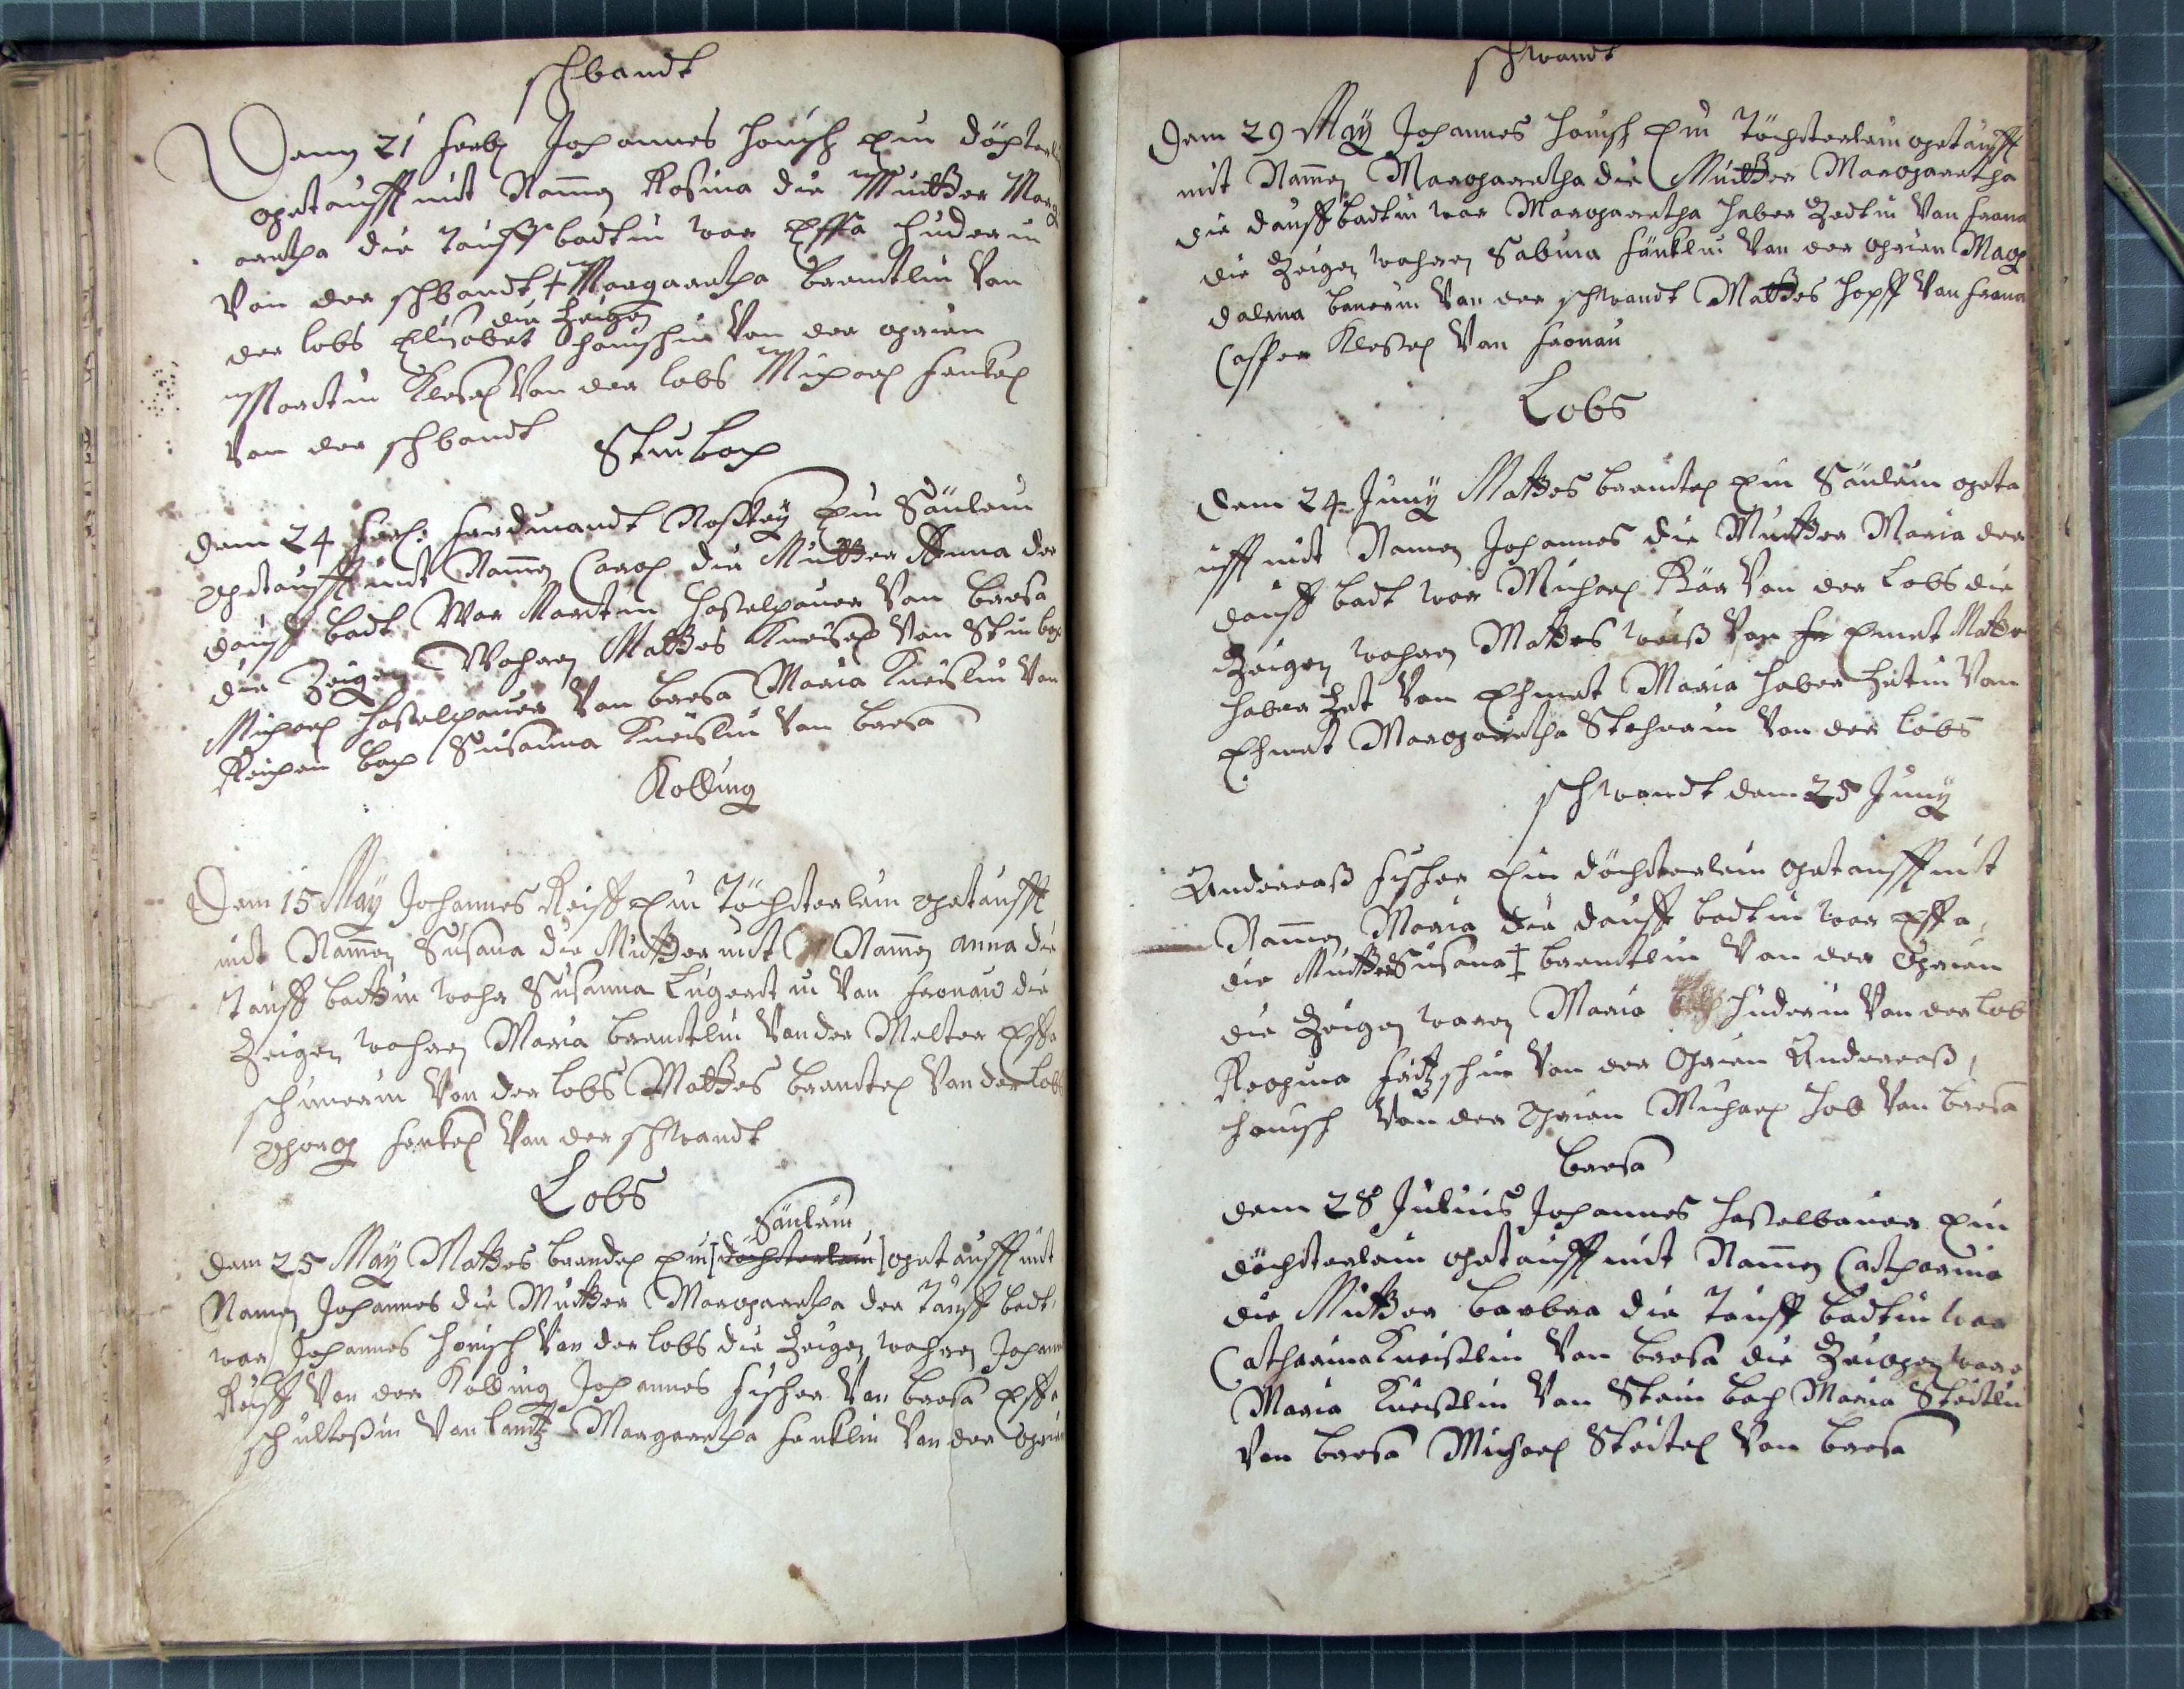 schbandt
Denn 21 Feeb Johannes Honsch Ein döchterl
getaufft mit Nammen Rosina die Mutter Marg
aretha die Tauffbadtin war Effa Huderin
Von der schbandt + Margaretha Brendtlin Von
die Zeigen
der lobs Elisabet Honschin Von der grien
Mardtin Klesel Von der lobs Michael Henkel
Von der schbandt
Steinbach
Dem 24 Ferdinandt Ein Sönlein
getaufft mit Nammen Carol die Mutter Anna der
dauff badt War Mardtin Hasselpauer Von Bresa
die Zeigen Wahren Mattes Kneisel Von Steinbach
Michael Hasselpauer Von Bresa Maria Kneislin Von
Reichen bach Susanna Kneislin Von Bresa
Kolling
Dem 15 Maÿ Johannes Reiff Ein Töchsterlein getaufft
mit Nammen Susana die Mutter mit Nammen anna die
Tauff battin wahr Susanna Lugerdtin Von Fronau die
Zeigen wahren Maria Brendtlin Von der Melter Effa
schmerin Von der lobs Mattes Brendtel Von der lobs
Georg Henkel Von der schwandt
Lobs
Sönlein
dem 25 Maÿ Mattes Brendel ein [döchsterlein] getaufft mit
Namen Johannes die Mutter Margaretha der Tauff badt
war Johannes Honisch Von der lobs die Zeigen wahren Johannes
Reiff Von der Kolling Johannes Fischer Von Bresa Effa
schultesin Von lantz Margaretha Henklin Von der grien
schwandt
Dem 29 Maÿ Johannes Honsch Ein Töchsterlein getaufft
mit Nammen Margaretha die Mutter Margaretha
die dauffbadtin war Margaretha Haber Zedtin Von Frana
die Zeigen wahren Sabina Hänklin Von der grien Mag
dalena Beuerin Von der schwandt Mattes Hopff Von Frana
Casper Klesel Von Fronau
Lobs
Dem 24 Juny Mattes Brendtel Ein Sönlein geta
ufft mit Namen Johannes die Mutter Maria der
dauff badt war Michael Bär Von der Lobs die
Zeigen wahren Mattes weiß Von Emet Mattes
Haber Zet Von Ehmet Maria Haber Zetin Von
Ehmet Margaretha Steherin Von der lobs
schwandt dem 25 Juny
Andereaß Fischer Ein döchsterlein getaufft mit
Nammen Maria die dauff badtin war Effa
die Mutter Susana ‡ Brendtlin Von der Grien
die Zeigen waren Maria Huderin Von der lob
Regina Fritzschin Von der Grien Andereaß
Honisch Von der Grien Michael Hob Von Bresa
Bresa
dem 28 Julius Johannes Hasselbauer Ein
döchsterlein getaufft mit Nammen Catharina
die Mutter Barbra die Tauff badtin war
Catharina Kneislin Von Bresa die Zeigen ware
Maria Kneislin Von Stein bach Maria Steidtlin
Von Bresa Michael Steitel Von Bresa